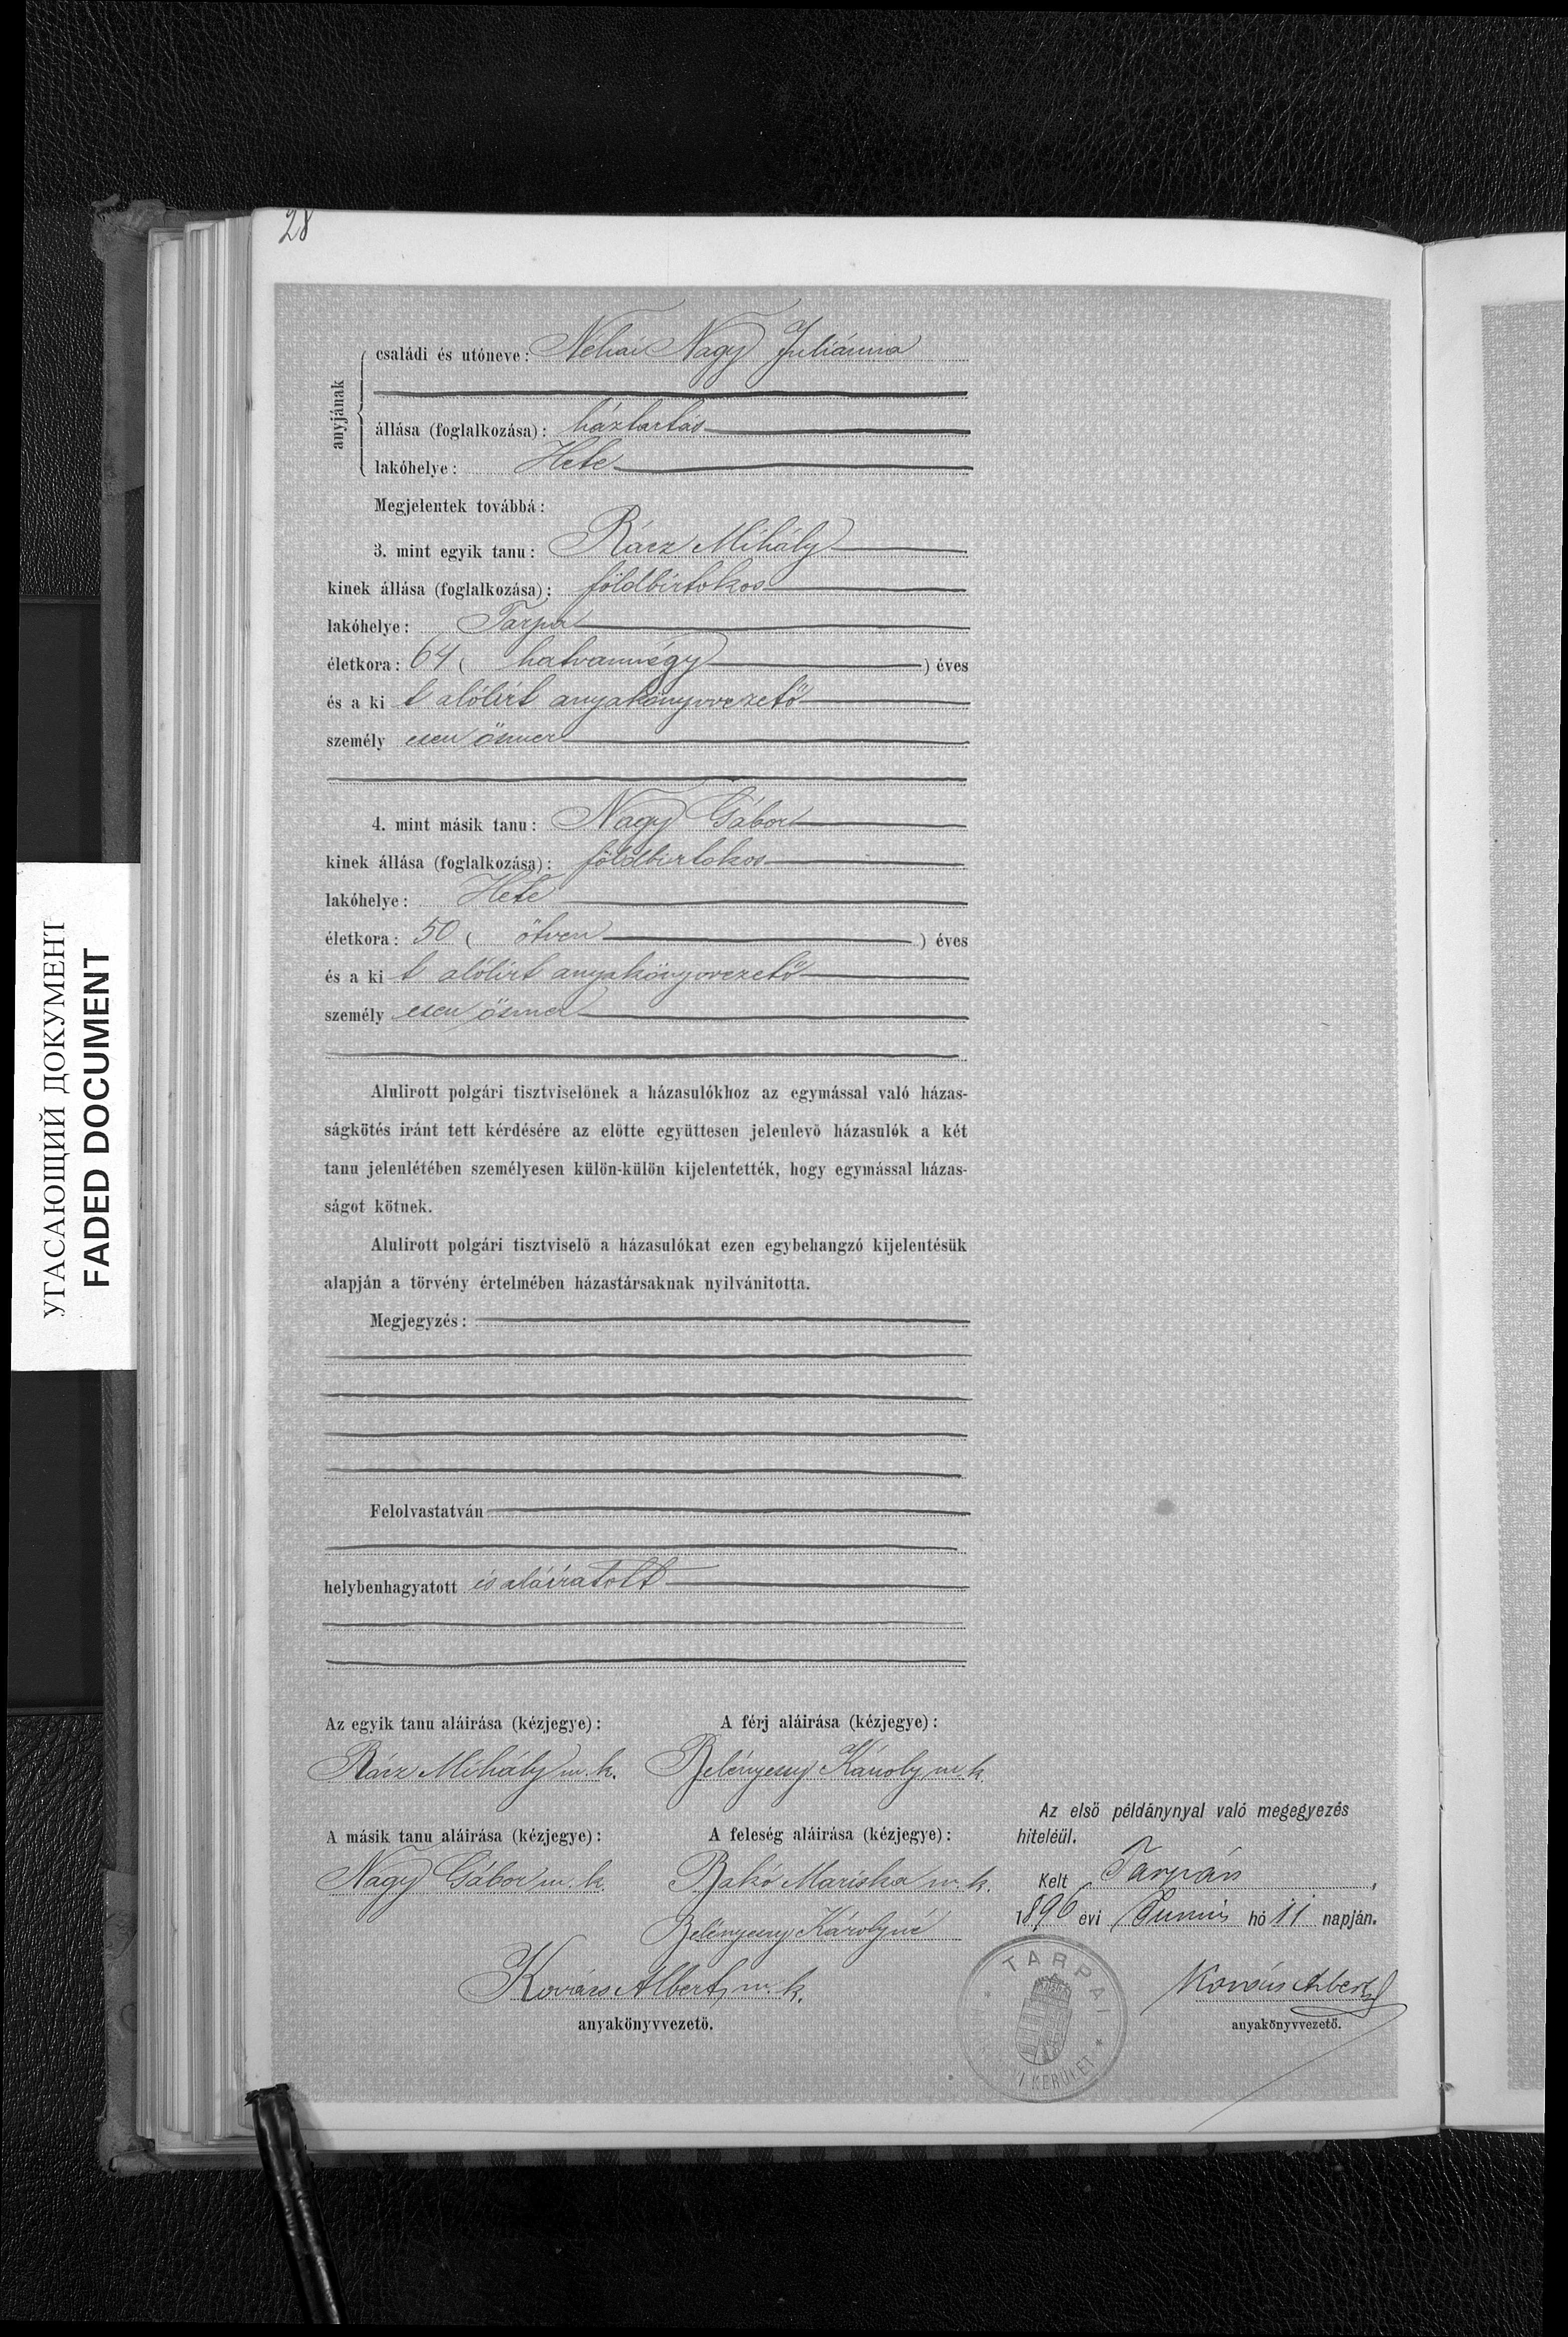 28
anyjának
családi és utóneve: Néhai Nagy Juliánna
állása (foglalkozása): háztartás
lakóhelye: Hete
Megjelentek továbbá:
3. mint egyik tanu: Rácz Mihály
kinek állása (foglalkozása): földbirtokos
lakóhelye: Tarpa
életkora: 64 ( hatvannégy ) éves
és a ki t alólirt anyakönyvvezető
személy esen ösmer
4. mint másik tanu: Nagy Gábor
kinek állása (foglalkozása): földbirtokos
lakóhelye: Hete
életkora: 50 ( ötven ) éves
és a ki t alólirt anyakönyvvezető
személy esen ösmer
Alulirott polgári tisztviselőnek a házasulókhoz az egymással való házas-
ságkötés iránt tett kérdésére az előtte együttesen jelenlevő házasulók a két
tanu jelenlétében személyesen külön-külön kijelentették, hogy egymással házas-
ságot kötnek.
Alulirott polgári tisztviselő a házasulókat ezen egybehangzó kijelentésük
alapján a törvény értelmében házastársaknak nyilvánitotta.
Megjegyzés:
Felolvastatván
helybenhagyatott és aláiratott
Az egyik tanu aláirása (kézjegye): A férj aláirása (kézjegye):
Rácz Mihály m. k. Belényesy Károly m. k.
A másik tanu aláirása (kézjegye): A feleség aláirása (kézjegye):
Nagy Gábor m. k. Bakó Mariska m. k.
Belényesy Károlyné
Kovács Albert, m. k.
anyakönyvvezető.
Az első példánynyal való megegyezés
hiteléül.
Kelt Tarpán,
1896 évi Junius hó 11 napján.
Kovács Albert
anyakönyvvezető.
TARPAI
KERÜLET
УГАСАЮЩИЙ ДОКУМЕНТ
FADED DOCUMENT